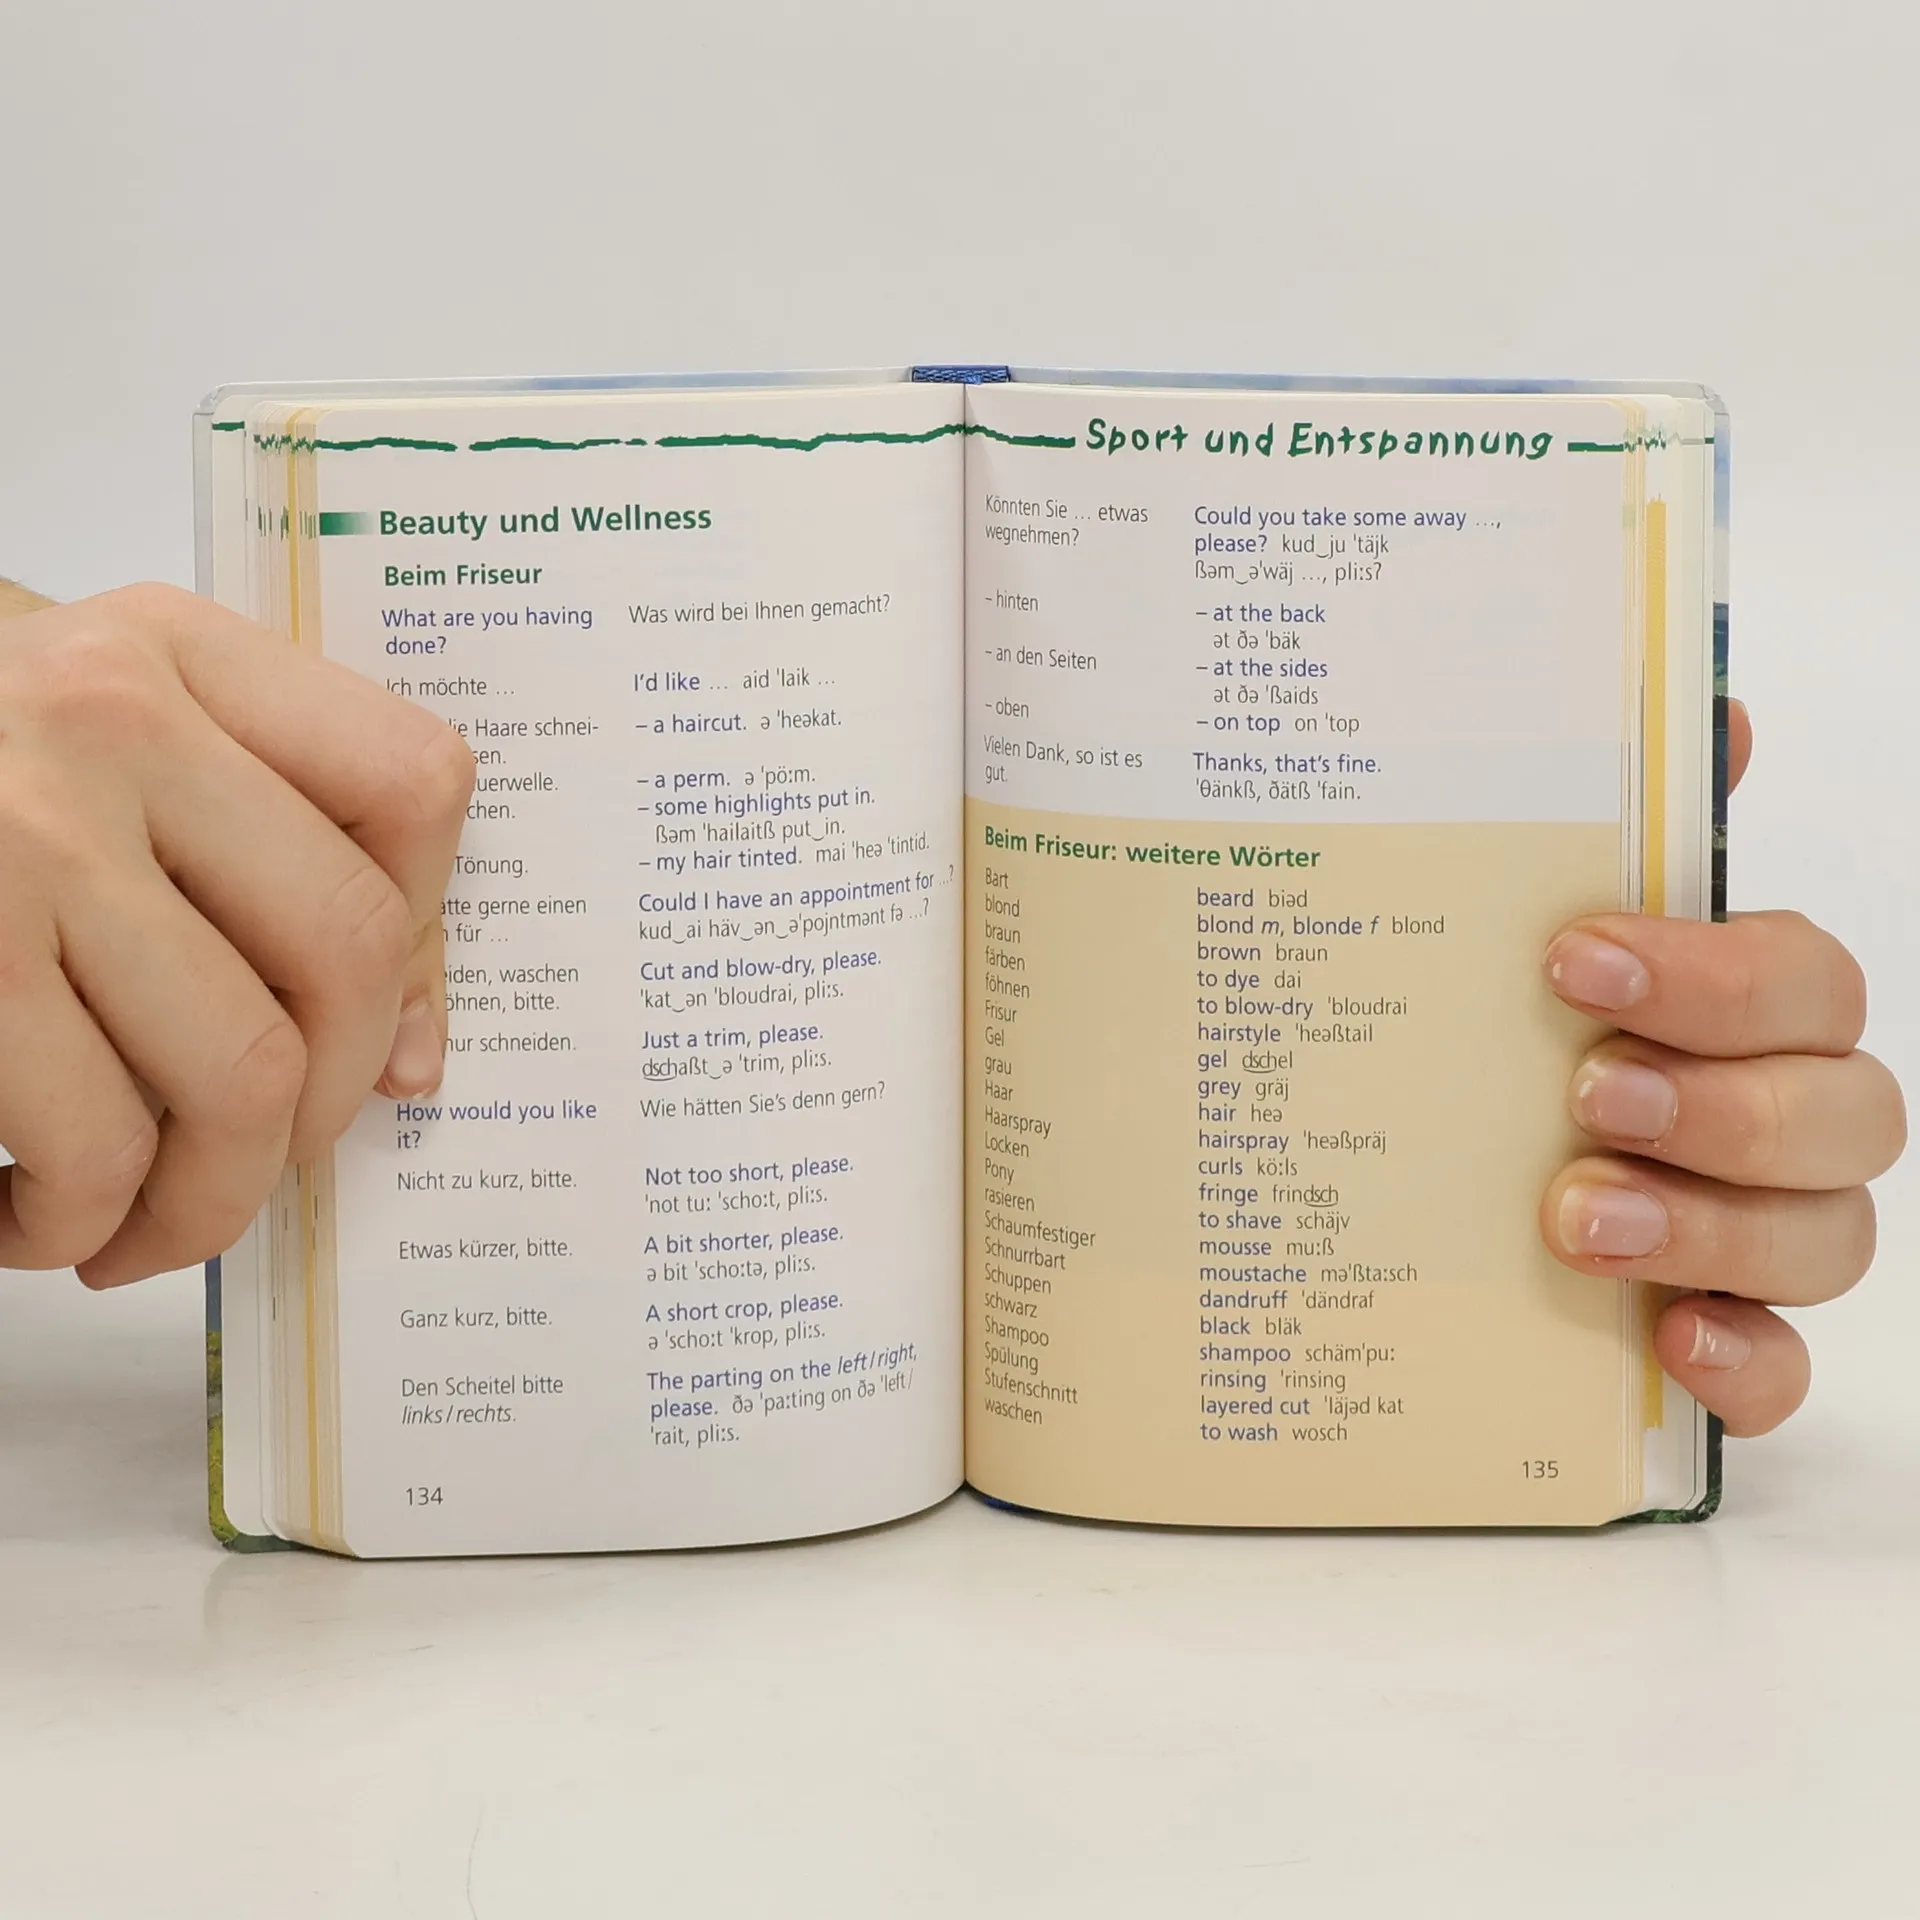 Beauty und Wellness
Beim Friseur
What are you having
done?
Was wird bei Ihnen gemacht?
Ich möchte ...
I'd like ... aid 'laik ...
Haare schnei-
– a haircut. ə 'heəkat.
– a perm. ə 'pö:m.
– some highlights put in.
ßəm 'hailaitß put‿in.
Tönung.
– my hair tinted. mai 'heə 'tintid.
gerne einen
für ...
Could I have an appointment for ...?
kud‿ai häv‿ən‿ə'pojntmənt fə ...?
waschen
bitte.
Cut and blow-dry, please.
'kat‿ən 'bloudrai, pli:s.
schneiden.
Just a trim, please.
dschaßt‿ə 'trim, pli:s.
How would you like
it?
Wie hätten Sie's denn gern?
Nicht zu kurz, bitte.
Not too short, please.
'not tu: 'scho:t, pli:s.
Etwas kürzer, bitte.
A bit shorter, please.
ə bit 'scho:tə, pli:s.
Ganz kurz, bitte.
A short crop, please.
ə 'scho:t 'krop, pli:s.
Den Scheitel bitte
links/rechts.
The parting on the left/right,
please. ðə 'pa:ting on ðə 'left/
'rait, pli:s.
134
Sport und Entspannung
Könnten Sie ... etwas
wegnehmen?
Could you take some away ...,
please? kud‿ju 'täjk
ßəm‿ə'wäj ..., pli:s?
– hinten
– at the back
ət ðə 'bäk
– an den Seiten
– at the sides
ət ðə 'ßaids
– oben
– on top on 'top
Vielen Dank, so ist es
gut.
Thanks, that's fine.
'θänkß, ðätß 'fain.
Beim Friseur: weitere Wörter
Bart beard biəd
blond blond m, blonde f blond
braun brown braun
färben to dye dai
föhnen to blow-dry 'bloudrai
Frisur hairstyle 'heəßtail
Gel gel dschel
grau grey gräj
Haar hair heə
Haarspray hairspray 'heəßpräj
Locken curls kö:ls
Pony fringe frindsch
rasieren to shave schäjv
Schaumfestiger mousse mu:ß
Schnurrbart moustache mə'ßta:sch
Schuppen dandruff 'dändraf
schwarz black bläk
Shampoo shampoo schäm'pu:
Spülung rinsing 'rinsing
Stufenschnitt layered cut 'läjəd kat
waschen to wash wosch
135